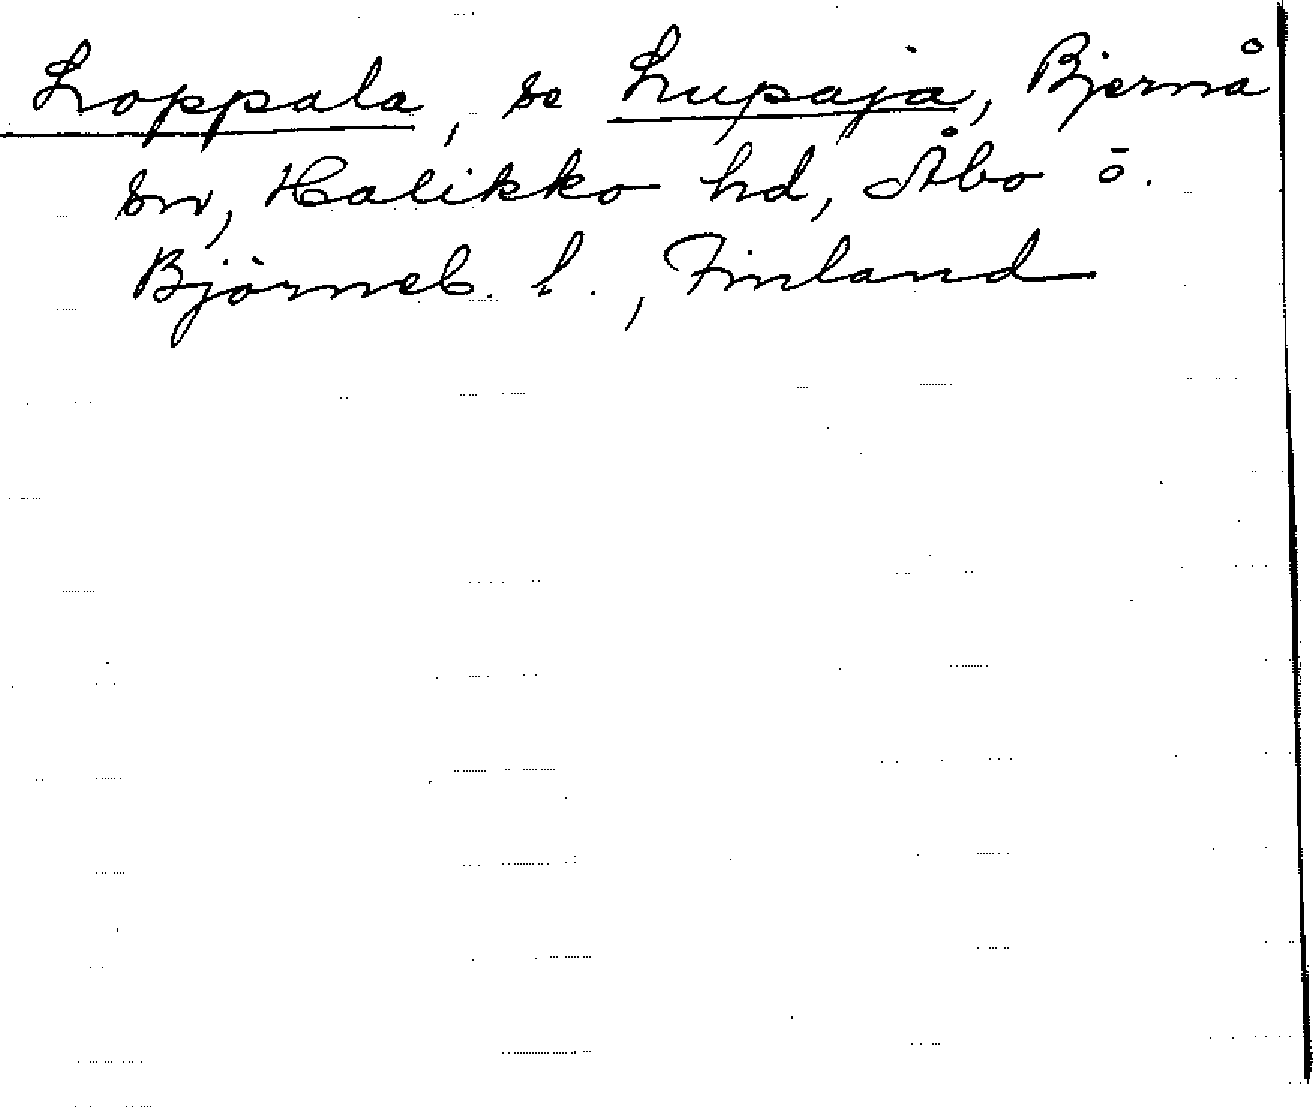 Loppala, se Lupaja, Bjernå
sn, Halikko hd, Åbo o.
Björneb. l., Finland